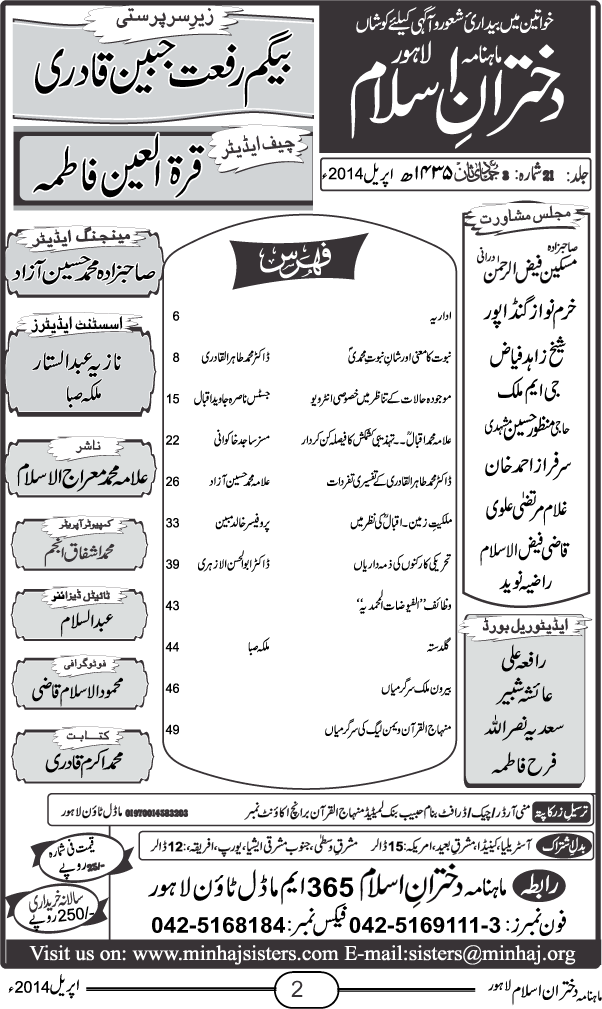 خواتین میں بیداریٔ شعور و آگہی کیلئے کوشاں
ماہنامہ دخترانِ اسلام لاہور
زیرِ سرپرستی
بیگم رفعت جبین قادری
چیف ایڈیٹر
قرۃ العین فاطمہ
جلد: 21 شمارہ: 3 جمادی الثانی ۱۴۳۵ھ اپریل 2014ء
مجلس مشاورت
صاحبزادہ مسکین فیض الرحمن درانی
خرم نواز گنڈاپور
شیخ زاہد فیاض
جی ایم ملک
حاجی منظور حسین مشہدی
سرفراز احمد خان
غلام مرتضیٰ علوی
قاضی فیض الاسلام
راضیہ نوید
ایڈیٹوریل بورڈ
رافعہ علی
عائشہ شبیر
سعدیہ نصراللہ
فرح فاطمہ
فہرس
اداریہ 6
نبوت کا معنی اور شانِ نبوتِ محمدیؐ ڈاکٹر محمد طاہرالقادری 8
موجودہ حالات کے تناظر میں خصوصی انٹرویو جسٹس ناصرہ جاوید اقبال 15
علامہ محمد اقبالؒ۔۔ تہذیبی کشمکش کا فیصلہ کن کردار مسز ساجد خاکوانی 22
ڈاکٹر محمد طاہرالقادری کے تفسیری تفردات علامہ محمد حسین آزاد 26
ملکیتِ زمین۔ اقبالؒ کی نظر میں پروفیسر خالد مبین 33
تحریکی کارکنوں کی ذمہ داریاں ڈاکٹر ابوالحسن الازہری 39
وظائف ”الفیوضات المحمدیہ“ 43
گلدستہ ملکہ صبا 44
بیرون ملک سرگرمیاں 46
منہاج القرآن ویمن لیگ کی سرگرمیاں 49
مینجنگ ایڈیٹر
صاحبزادہ محمد حسین آزاد
اسسٹنٹ ایڈیٹرز
نازیہ عبدالستار
ملکہ صبا
ناشر
علامہ محمد معراج الاسلام
کمپیوٹر آپریٹر
محمد اشفاق انجم
ٹائیٹل ڈیزائنر
عبدالسلام
فوٹوگرافی
محمود الاسلام قاضی
کتابت
محمد اکرم قادری
ترسیل زر کا پتہ منی آرڈر/چیک/ڈرافٹ بنام حبیب بنک لمیٹیڈ منہاج القرآن برانچ اکاؤنٹ نمبر 01970014583203 ماڈل ٹاؤن لاہور
بدل اشتراک آسٹریلیا، کینیڈا، مشرق بعید، امریکہ: 15 ڈالر مشرق وسطی، جنوب مشرقی ایشیا، یورپ، افریقہ: 12 ڈالر
قیمت فی شمارہ
25/- روپے
سالانہ خریداری
250/- روپے
رابطہ ماہنامہ دخترانِ اسلام 365 ایم ماڈل ٹاؤن لاہور
فون نمبرز: 042-5169111-3 فیکس نمبر: 042-5168184
Visit us on: www.minhajsisters.com E-mail:sisters@minhaj.org
ماہنامہ دخترانِ اسلام لاہور 2 اپریل 2014ء